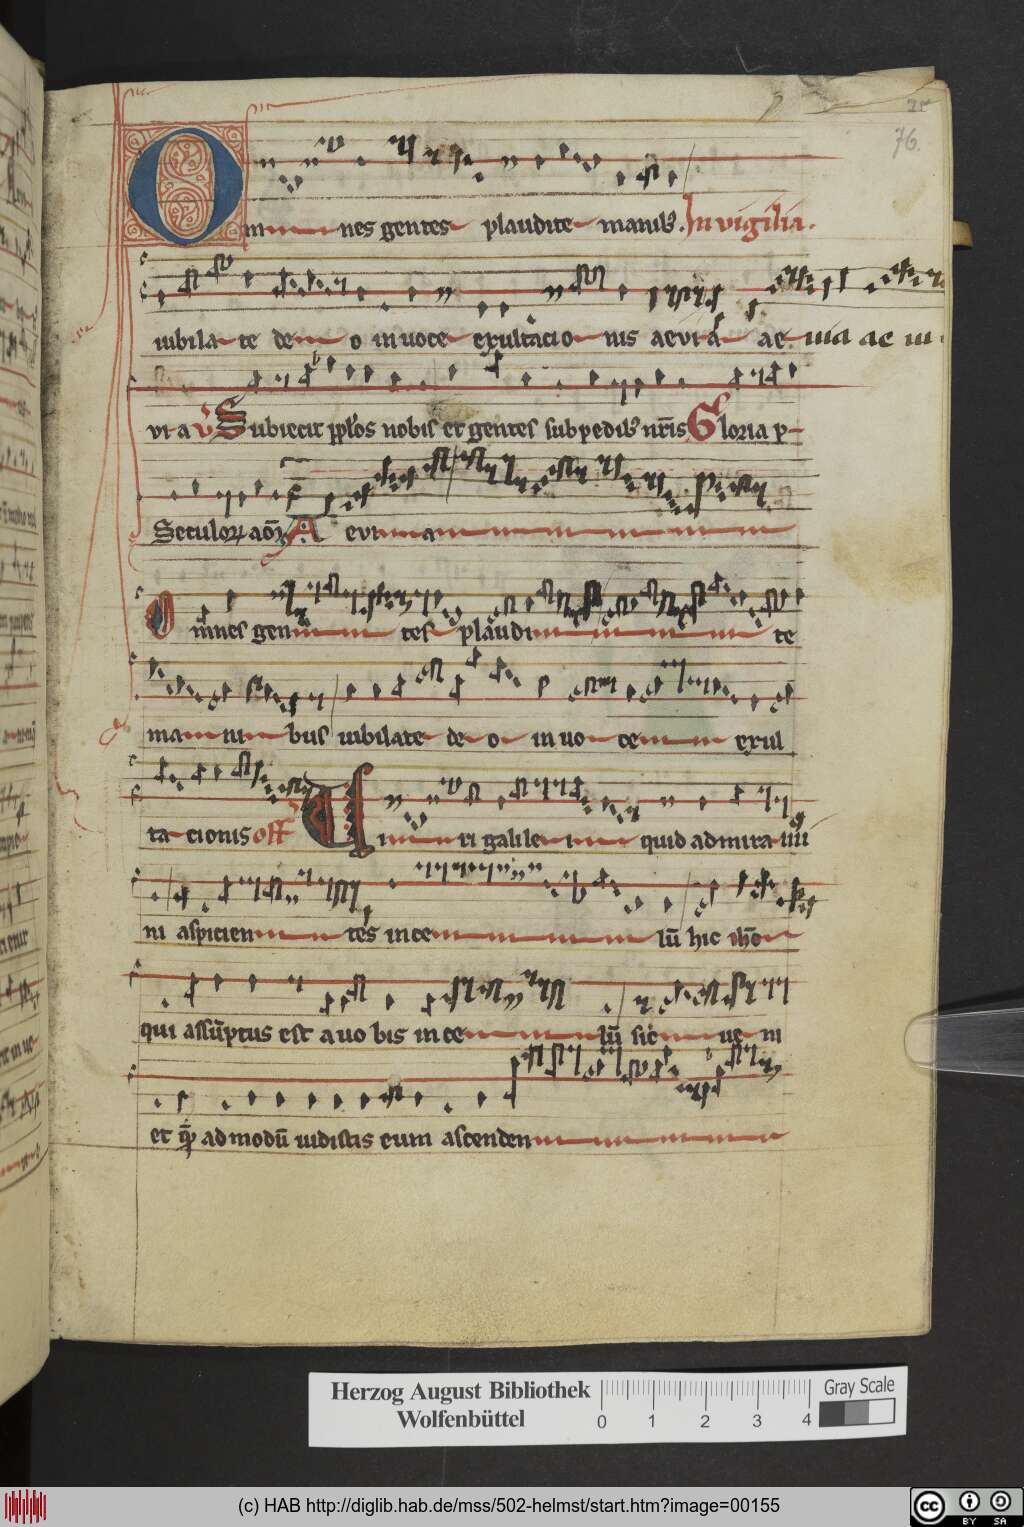 76.
Omnes gentes plaudite manib9. In vigilia.
iubilate deo in uoce exultacionis aevia ae uia ae ui
via v Subiecit pplos nobis et gentes sub pedib9 nris Gloria p
Seculor aom A evia
Omnes gentes plaudite
manibus iubilate deo in uoce exul
tacionis off Uiri galilei quid admirami
ni aspicientes in celu hic ihc
qui assuptus est a uobis in celu sic ueni
et que admodu uidistis eum ascenden
Herzog August Bibliothek
Wolfenbüttel
0 1 2 3 4
Gray Scale
(c) HAB http://diglib.hab.de/mss/502-helmst/start.htm?image=00155
cc BY SA